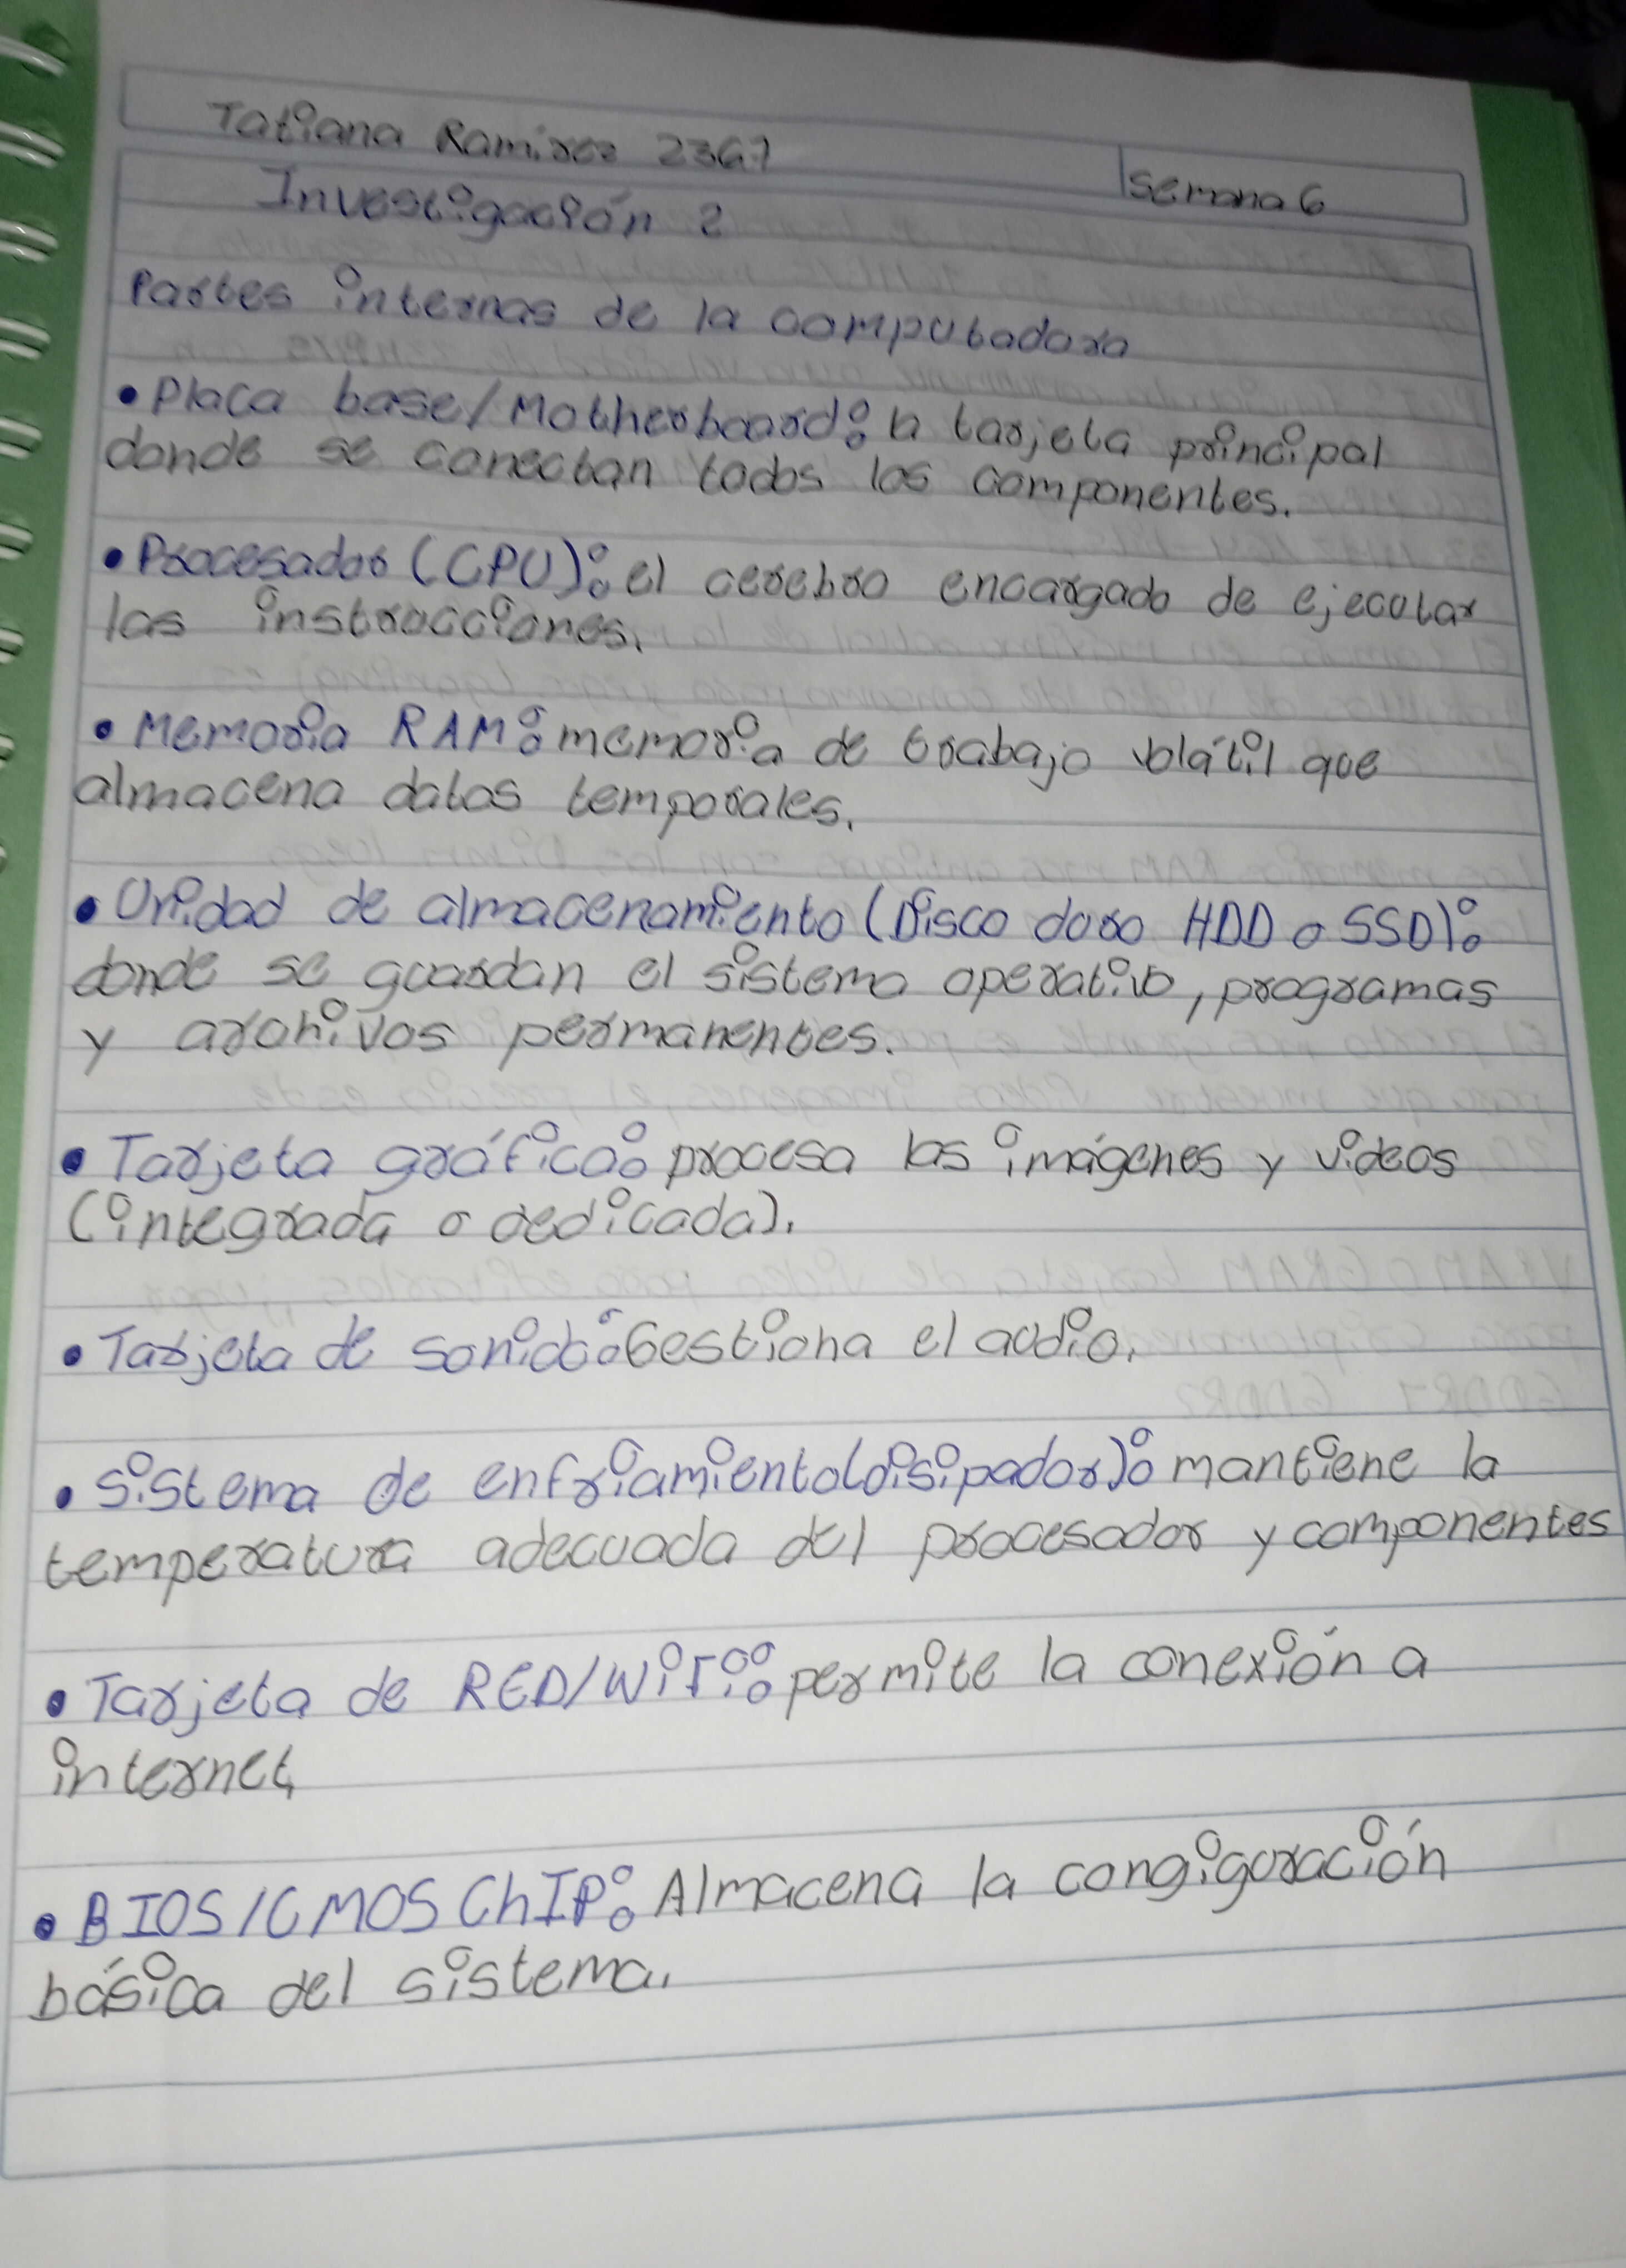 Tatiana Ramírez 2367
Semana 6
Investigación 2
Partes internas de la computadora
• Placa base/Motherboard: la tarjeta principal
donde se conectan todos los componentes.
• Procesador (CPU): el cerebro encargado de ejecutar
las instrucciones.
• Memoria RAM: memoria de trabajo volátil que
almacena datos temporales.
• Unidad de almacenamiento (Disco duro HDD o SSD):
donde se guardan el sistema operativo, programas
y archivos permanentes.
• Tarjeta gráfica: procesa las imágenes y videos
(integrada o dedicada).
• Tarjeta de sonido: Gestiona el audio.
• Sistema de enfriamiento (disipador): mantiene la
temperatura adecuada del procesador y componentes
• Tarjeta de RED/WiFi: permite la conexión a
internet.
• BIOS/CMOS ChIP: Almacena la congiguración
básica del sistema.